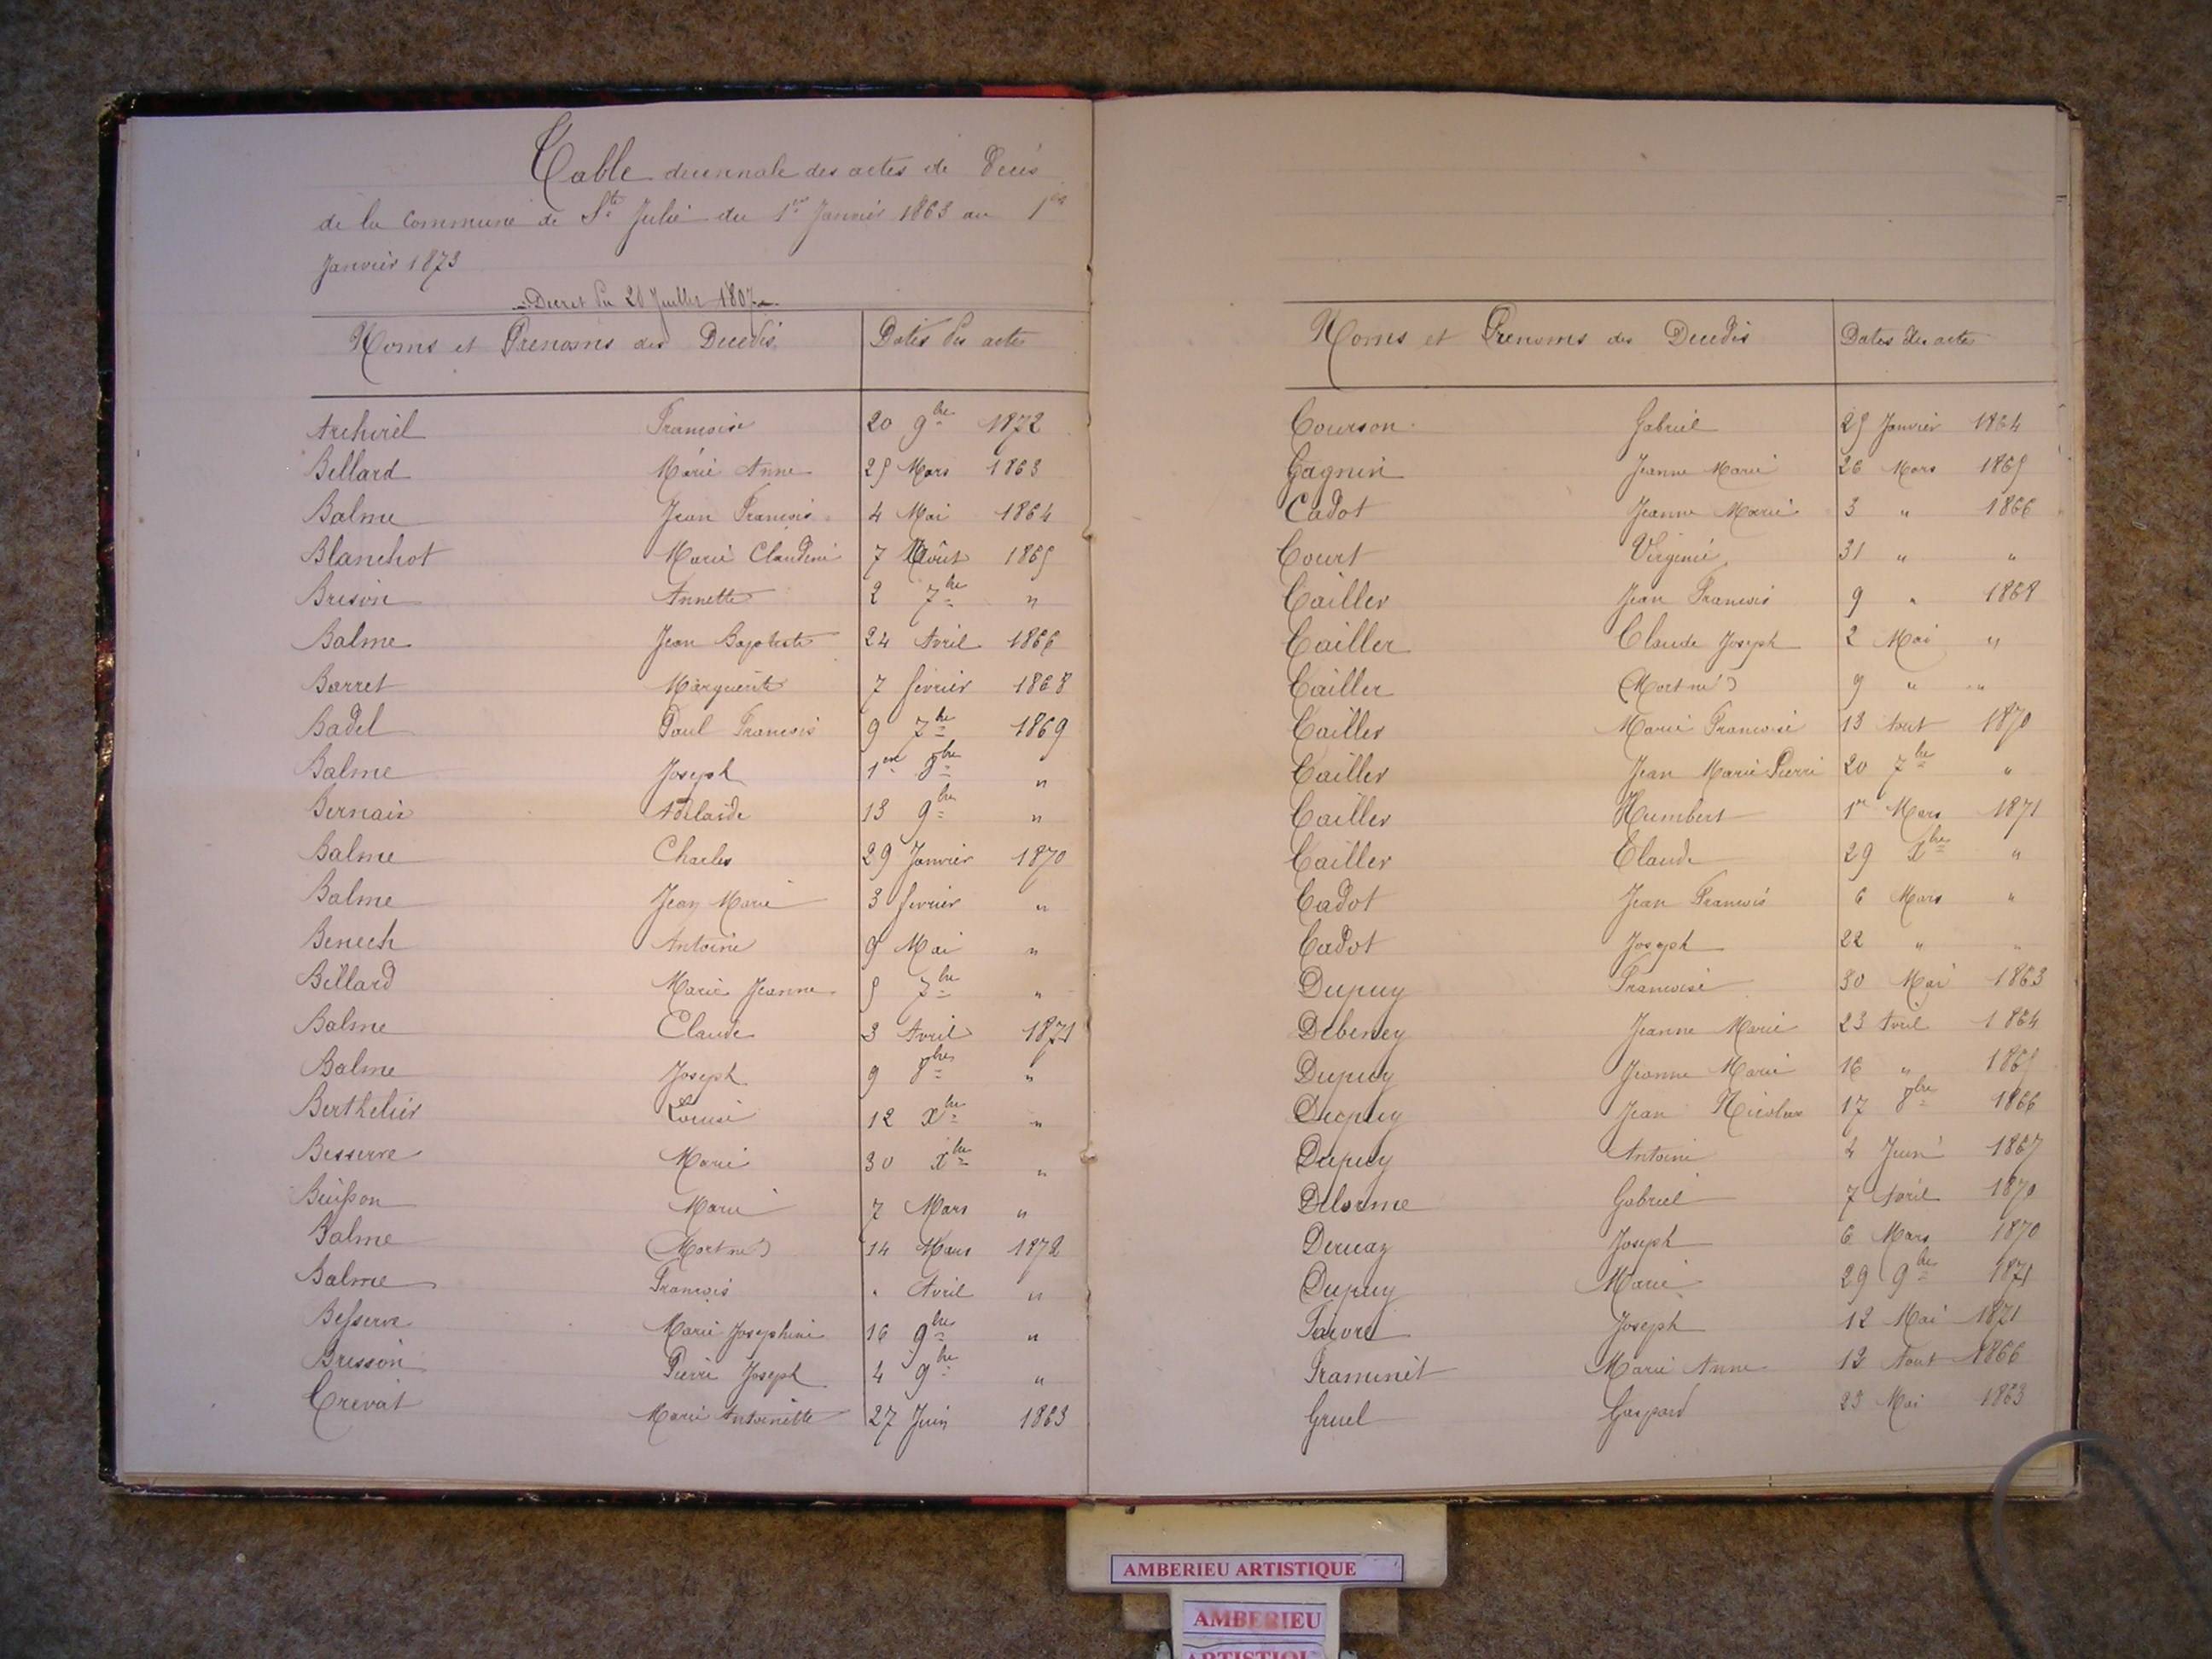 Table decennale des actes de Décès
de la Commune de Ste Julie du 1er Janvier 1863 au 1er
Janvier 1873
Decret du 20 Juillet 1807
Noms et Prenoms des Decedés Dates des actes
Archirel Francoise 20 9bre 1872
Bellard Marie Anne 25 Mars 1863
Balme Jean Francois 4 Mai 1864
Blanchot Marie Claudine 7 Août 1865
Brison Annette 2 7bre "
Balme Jean Baptiste 24 Avril 1866
Barret Marguerite 7 fevrier 1868
Badel Paul Francois 9 7bre 1869
Balme Joseph 1er 8bre "
Bernain Adelaide 13 9bre "
Balme Charles 29 Janvier 1870
Balme Jean Marie 3 fevrier "
Benech Antoine 9 Mai "
Billard Marie Jeanne 5 7bre "
Balme Claude 3 Avril 1871
Balme Joseph 9 8bre "
Berthelier Louise 12 xbre "
Besserve Marie 30 xbre "
Buisson Marie 7 Mars "
Balme (Mort né) 14 Mars 1872
Balme Francois " Avril "
Besserve Marie Josephine 16 9bre "
Bresson Pierre Joseph 4 9bre "
Crevat Marie Antoinette 27 Juin 1863
Noms et Prenoms des Decedés Dates des actes
Courson Gabriel 25 Janvier 1864
Gagnin Jeanne Marie 26 Mars 1865
Cadot Jeanne Marie 3 " 1866
Court Virginie 31 " "
Cailler Jean Francois 9 " 1868
Cailler Claude Joseph 2 Mai "
Cailler (Mort né) 9 " "
Cailler Marie Francoise 13 Aout 1870
Cailler Jean Marie Pierre 20 7bre "
Cailler Humbert 1er Mars 1871
Cailler Claude 29 xbre "
Cadot Jean Francois 6 Mars "
Cadot Joseph 22 " "
Dupuy Francoise 30 Mai 1863
Debeney Jeanne Marie 23 Avril 1864
Dupuy Jeanne Marie 16 " 1865
Dupuy Jean Nicolas 17 8bre 1866
Dupuy Antoine 4 Juin 1867
Delorme Gabriel 7 Avril 1870
Deruaz Joseph 6 Mars 1870
Dupuy Marie 29 9bre 1871
Favre Joseph 12 Mai 1871
Framinet Marie Anne 12 Aout 1866
Gruel Gaspard 23 Mai 1863
AMBERIEU ARTISTIQUE
AMBERIEU
ARTISTIQUE